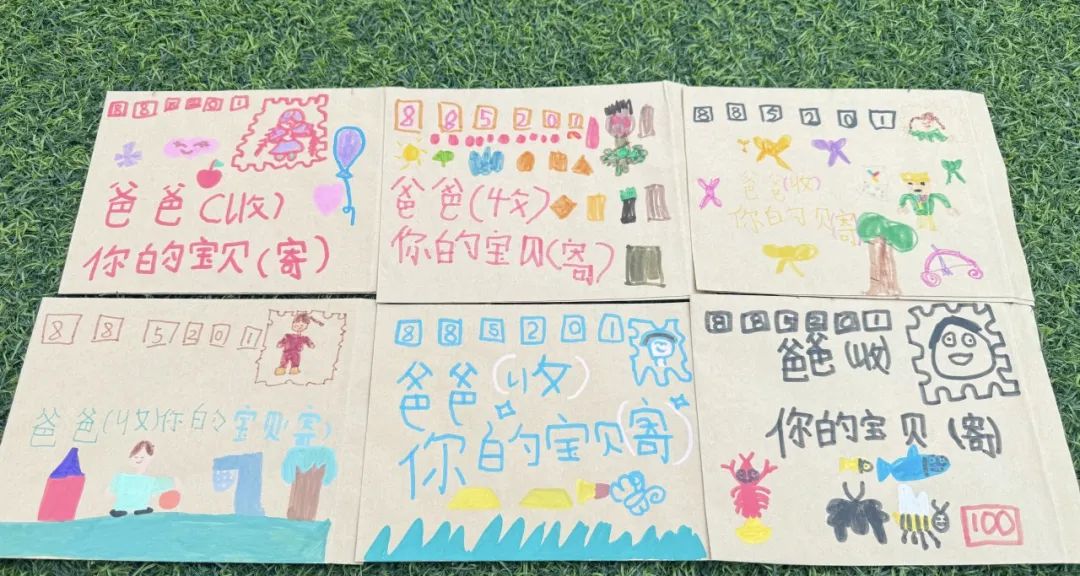 爸爸(收)
你的宝贝(寄)
8 8 5 2 0 1
爸爸(收)
你的宝贝(寄)
8 8 5 2 0 1
爸爸(收)
你的宝贝寄
8 8 5 2 0 1
爸爸(收)你的宝贝(寄)
8 8 5 2 0 1
爸爸(收)
你的宝贝(寄)
8 8 5 2 0 1
爸爸(收)
你的宝贝(寄)
100